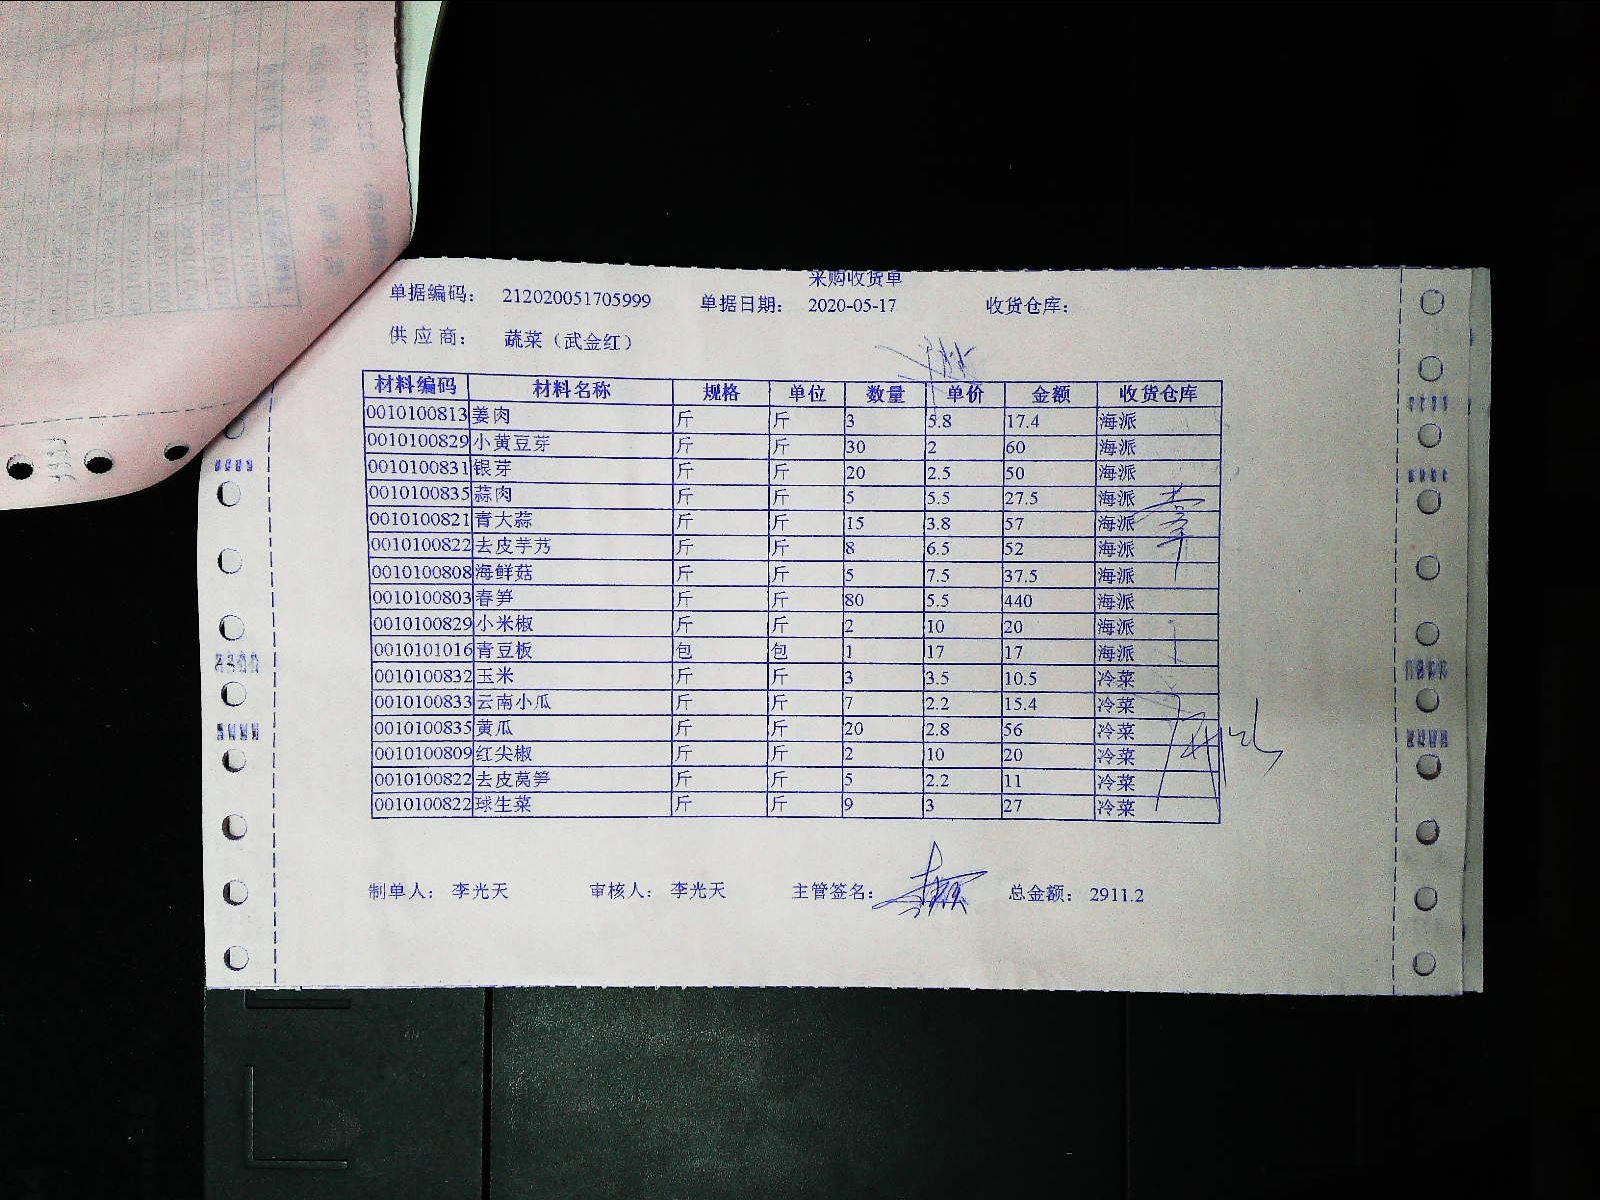 采购收货单
单据编码： 212020051705999 单据日期： 2020-05-17 收货仓库：
供应商： 蔬菜（武金红）
材料编码 材料名称 规格 单位 数量 单价 金额 收货仓库
0010100813 姜肉 斤 斤 3 5.8 17.4 海派
0010100829 小黄豆芽 斤 斤 30 2 60 海派
0010100831 银芽 斤 斤 20 2.5 50 海派
0010100835 蒜肉 斤 斤 5 5.5 27.5 海派
0010100821 青大蒜 斤 斤 15 3.8 57 海派
0010100822 去皮芋艿 斤 斤 8 6.5 52 海派
0010100808 海鲜菇 斤 斤 5 7.5 37.5 海派
0010100803 春笋 斤 斤 80 5.5 440 海派
0010100829 小米椒 斤 斤 2 10 20 海派
0010101016 青豆板 包 包 1 17 17 海派
0010100832 玉米 斤 斤 3 3.5 10.5 冷菜
0010100833 云南小瓜 斤 斤 7 2.2 15.4 冷菜
0010100835 黄瓜 斤 斤 20 2.8 56 冷菜
0010100809 红尖椒 斤 斤 2 10 20 冷菜
0010100822 去皮莴笋 斤 斤 5 2.2 11 冷菜
0010100822 球生菜 斤 斤 9 3 27 冷菜
制单人： 李光天 审核人： 李光天 主管签名： 总金额： 2911.2